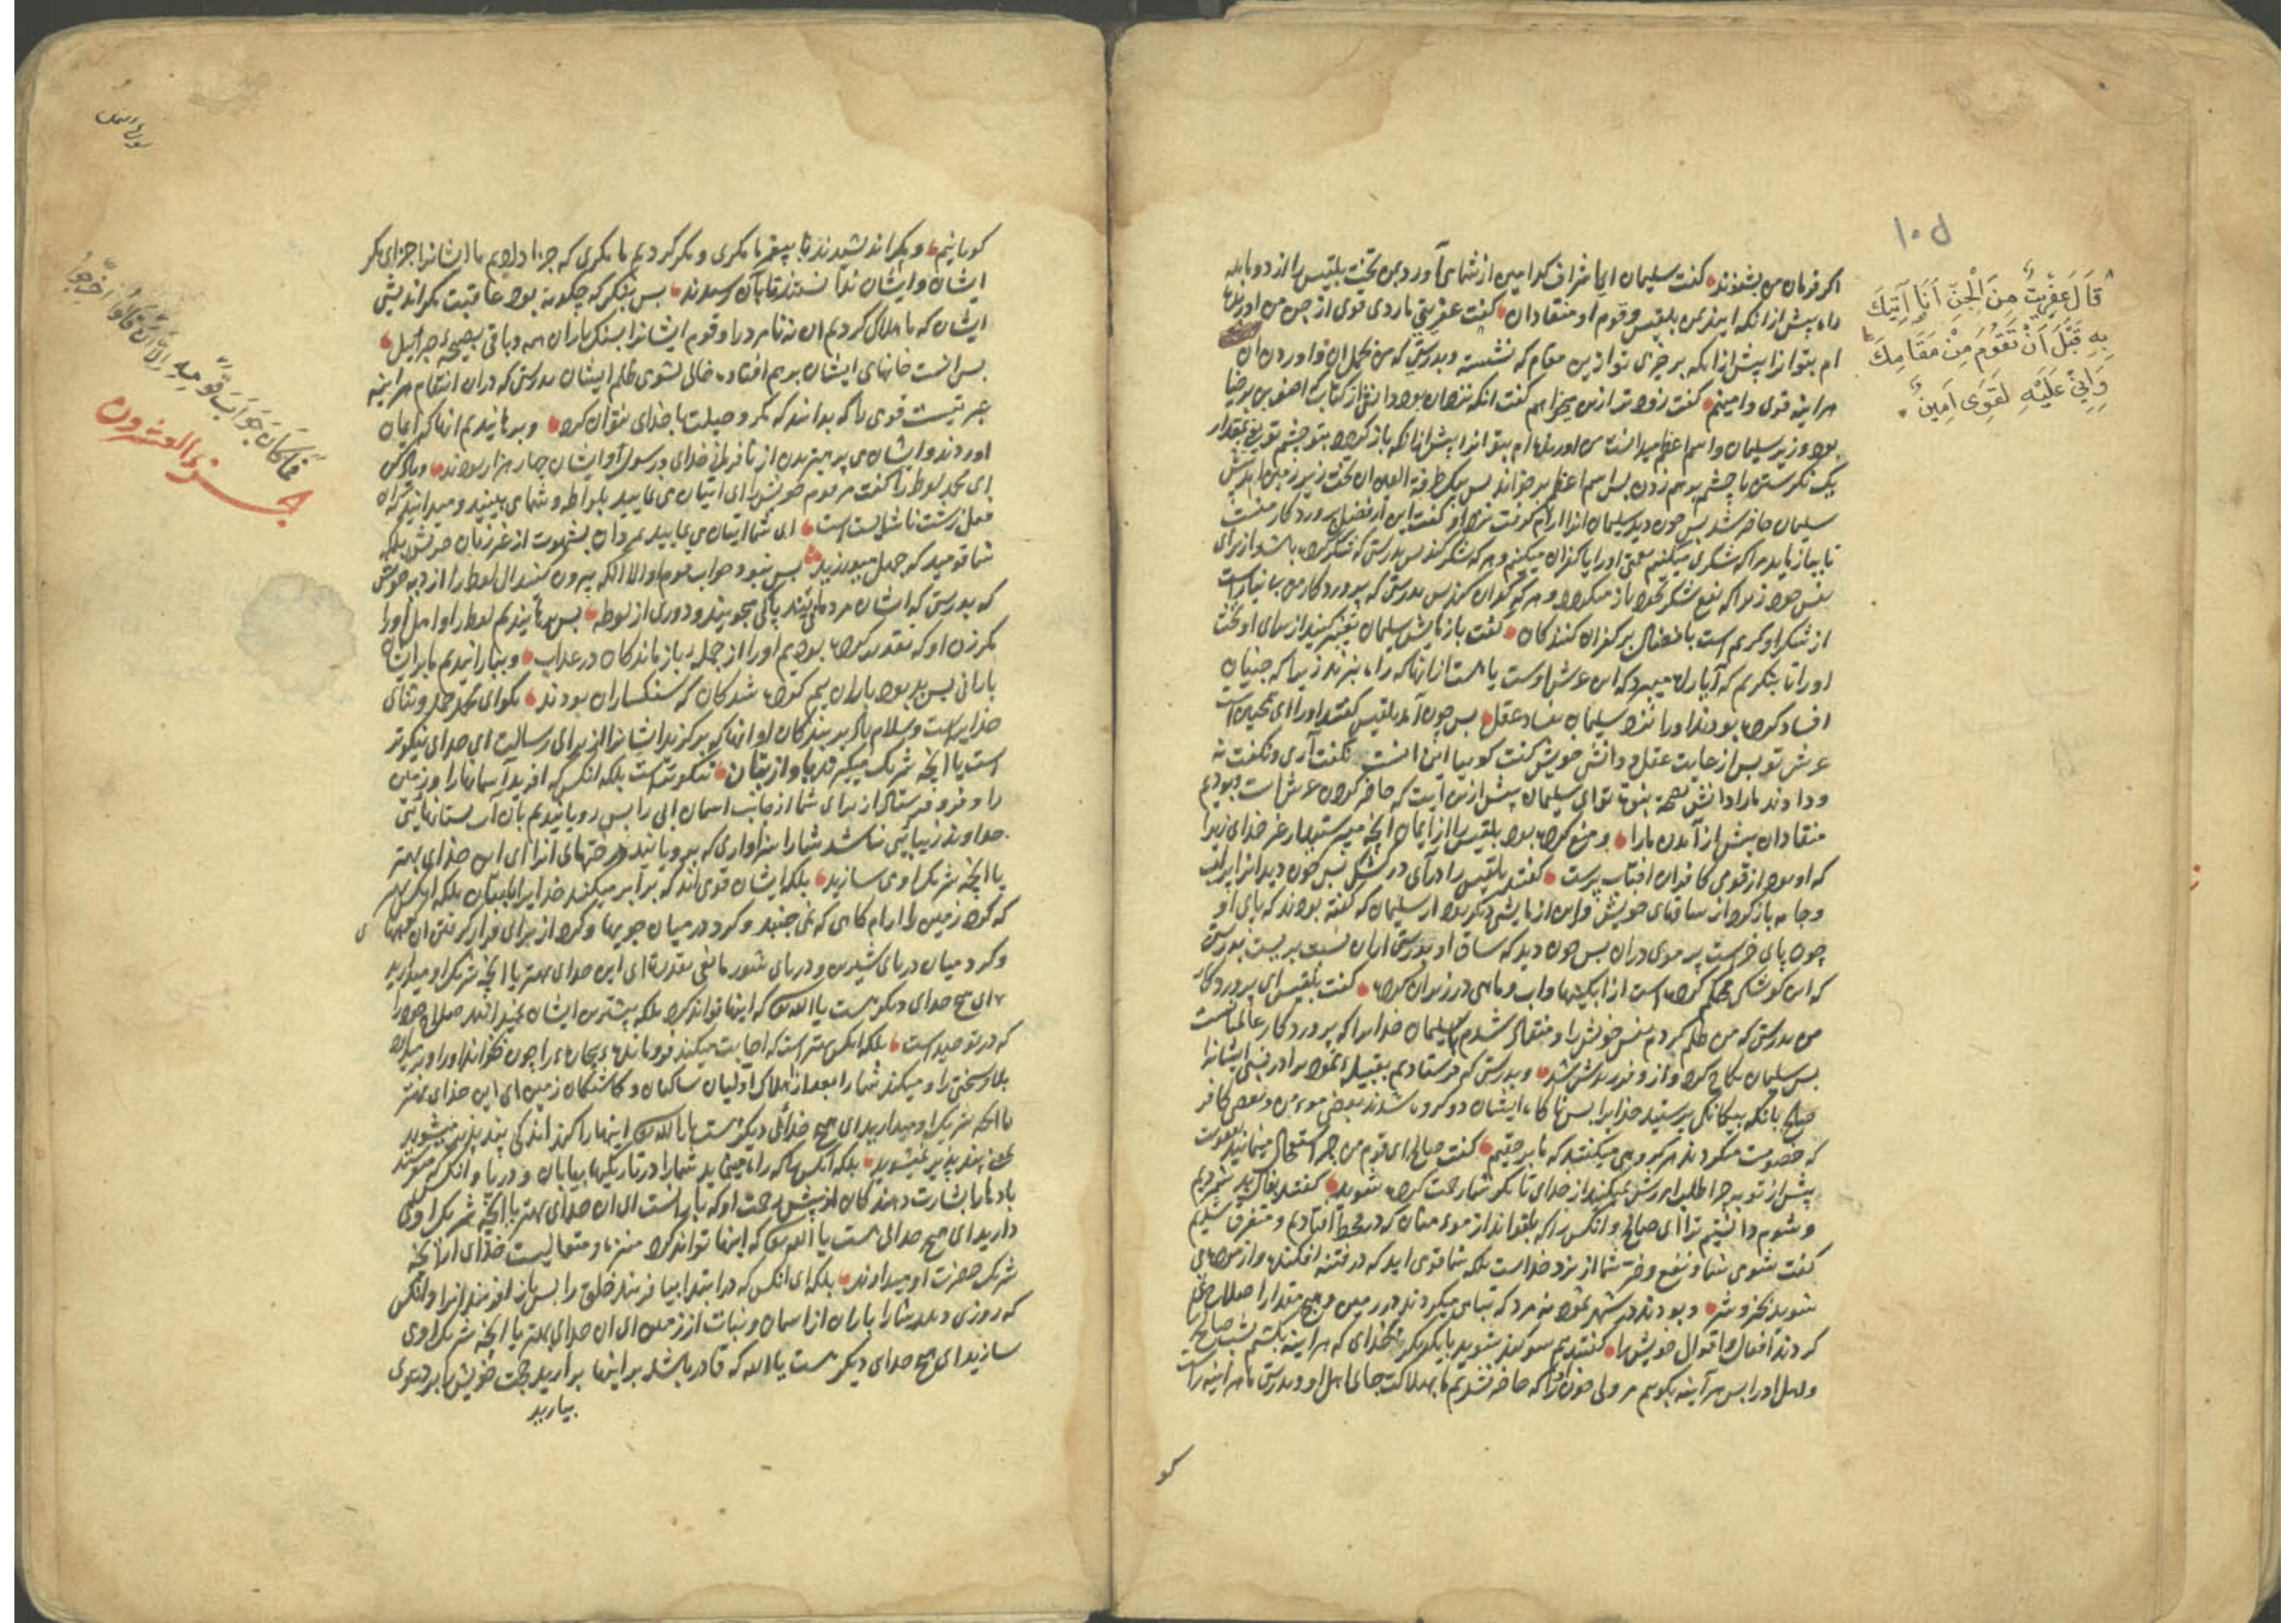 ۱۰۵
قَالَ عِفْرِيتٌ مِنَ الْجِنِّ أَنَا آتِيكَ
بِهِ قَبْلَ أَنْ تَقُومَ مِنْ مَقَامِكَ
وَإِنِّي عَلَيْهِ لَقَوِيٌّ أَمِينٌ
اکر فرمان من بشنوند کفت سلیمان ایها اشراف کدامین از شما می آورد بمن تخت بلقیس را از دو ماهه
راه پیش از انکه ایند بمن بلقیس و قوم او منقادان کفت عفریتی ماردی قوی از جن من اورنده
ام بتو انرا پیش از انکه برخیزی تو ازین مقام که نشسته و بدرستی که من بحمل ان و اوردن ان
هراینه قوی و امینم کفت زودتر ازین میخواهم کفت انکه نزد ان بود دانشی از کتاب اصف بن برخیا
بود وزیر سلیمان و اسم اعظم میدانست من اورنده ام بتو انرا پیش از انکه باز کردد بتو چشم تو یعنی بمقدار
یک نکرستن یا چشم برهم زدن پس اسم اعظم برخواند پس بیک طرفة العین ان تخت زیر زمین امد پیش
سلیمان حاضر شد پس چون دید سلیمان انرا ارام کرفت نزد او کفت این از فضل پروردکار منست
تا بیازماید مرا که شکری میکنم نعمتی او را یا کفران میکنم و هر که شکر کند پس بدرستی که شکر کرده باشد از برای
نفس خود زیرا که نفع شکر بخود باز میکردد و هر که کفران کند پس بدرستی که پروردکار من بی نیاز است
از شکر او کریم است با فضال بر کفران کنندکان کفت بازمایش سلیمان تغییر کنید از برای او تخت
او را تا بنکریم که آیا راه میبرد که این عرش اوست یا هست از انها که راه نبرند زیرا که جنیان
افساد کرده بودند او را نزد سلیمان بفساد عقل پس چون آمد بلقیس کفتند او را ای همچنین است
عرش تو پس از غایت عقل و دانش خویش کفت کوییا این انست نکفت آری و نکفت نه
و دادند ما را دانش بصحة نبوة تو ای سلیمان پیش ازین آیت که حاضر کردن عرش است و بودیم
منقادان پیش از آمدن ما را و منع کرده بود بلقیس را از ایمان انچه میپرستید از غیر خدای زیرا
که او بود از قومی کافران افتاب پرست کفتند بلقیس را درآی در کوشک پس چون دید انرا پر اب
و جامه باز کرد از ساقهای خویش و این ازمایشی دیکر بود از سلیمان که کفته بودند که پای او
چون پای خر است پر موی دران پس چون دید که ساق او
که این کوشکی محکم کرده است از ابکینها و اب و ماهی در زیر ان کرده کفت بلقیس ای پروردکار
من بدرستی که من ظلم کردم نفس خویش را و منقاد شدم بسلیمان خدایرا که پروردکار عالمیانست
پس سلیمان نکاح کرد و از و فرزندش شد و بدرستی که فرستادیم بقبیله ثمود برادر نسبی ایشانرا
صالح بانکه بیکانکی پرستید خدایرا پس ناکاه ایشان دو کروه شدند بعضی مومن و بعضی کافر
که خصومت میکردند هر کروهی میکفتند که ما برحقیم کفت صالح ای قوم من چرا استعجال مینمایید بعقوبت
پیش از توبه چرا طلب امرزش نمیکنید از خدای تا مکر شما رحمت کرده شوید کفتند بفال بد شمردیم
و شوم دانستیم ترا ای صالح و انکس را که بتواند از مومنان که در قحط افتادیم و متفرق شدیم
کفت شومی شما و نفع و ضر شما از نزد خداست بلکه شما قومی اید که در فتنه افکنده و ازموده می
شوید بخیر و شر و بودند در شهر ثمود نه مرد که تباهی میکردند در زمین و هیچ مقدار اصلاح نمی
کردند افعال و اقوال خویش را کفتند بهم سوکند شوید با یکدیکر بخدای که هراینه بکشیم شب صالح
و اهل او را پس هرآینه بکوییم مر ولی خون را که حاضر نشدیم ما بهلاکت جای اهل او و بدرستی ما هراینه راست
کو
سورة النمل
فَمَا كَانَ جَوَابَ قَوْمِهِ إِلَّا أَنْ قَالُوا أَخْرِجُوا
جزء العشرون
کویانیم و مکر اندیشیدند با پیغمبر ما مکری و مکر کردیم ما مکری که جزا دادیم ما ایشانرا جزای مکر
ایشان و ایشان ندانستند تا بآن رسیدند پس بنکر که چکونه بود عاقبت مکر اندیشی
ایشان که ما هلاک کردیم ان نه نامرد را و قوم ایشانرا بسنک باران همه و باقی بصیحهٔ جبرائیل
پس انست خانهای ایشان برهم افتاده خالی بشومی ظلم ایشان بدرستی که دران انتقام هراینه
عبرتیست قومی را که بدانند که مکر و حیلت با خدای نتوان کرد و برهانیدیم انها که ایمان
اوردند و ایشان می پرهیزیدن از نافرمانی خدای و رسول او و ایشان چهار هزار بودند و یاد کن
ای محمد لوط را کفت مر قوم خویش را ای اتیان می نمایید بلواطه و شما می بینید و میدانید که ان
فعل زشت ناشایست است ای شما اتیان می نمایید بمردان بشهوت از غیر زنان خویش بلکه
شما قومید که جهل میورزید پس نبود جواب قوم او الا انکه بیرون کنید ال لوط را از دیه خویش
که بدرستی که ایشان مردمانی اند پاکی میجویند و دوری از لوطه پس برهانیدیم لوط را و اهل او را
مکر زن او که مقدر کرده بودیم او را از جمله بازماندکان در عذاب و ببارانیدیم ما بر ایشان
بارانی پس بد بود باران بیم کرده شدکان که سنکساران بودند بکو ای محمد حمد و ثنای
خدایراست و سلام باد بر بندکان او انها که برکزید ایشانرا از برای رسالت ای خدای نیکوتر
است یا انچه شریک میکیرند باو از بتان نیکوتر است بلکه انکس که افرید آسمانها را و زمین
را و فرو فرستاد از برای شما از جانب اسمان ابی را پس رویانیدیم بان آب بستانهایی
خداوند زیبایی نباشد شما را سزاواری که برویانید درختهای انرا ای این خدای بهتر
یا انچه شریک او می سازید بلکه ایشان قومی اند که برابر میکنند خدایرا با بتان بلکه انکس بهتر
که کرد زمین را ارام کاهی که نمی جنبد و کرد در میان جویها و کرد از برای قرار کرفتن ان کوهها
و کرد میان دریای شیرین و دریای شور مانعی بقدرة ای این خدای بهتر یا انچه شریک او میدارید
ای هیچ خدای دیکر هست با الله که اینها تواند کرد بلکه بیشترین ایشان نمیدانند صلاح خود را
که در توحید است بلکه انکس بهتر است که اجابت میکند فرومانده و بیچاره را چون بخواند او را و ببرد
بلا و سختی را و میکند شما را بعد از هلاک اولیان ساکنان و کماشتکان زمین ای این خدای بهتر
یا انچه شریک او میدارید ای هیچ خدائی دیکر هست با الله که اینها را کند اندکی پند پذیر میشوید
پند پذیر نمیشوید بلکه انکس که راه مینماید شما را در تاریکیهای بیابان و دریا و انکس که میفرستد
بادها را بشارت دهندکان از پیش رحمت او که بارانست ای ان خدای بهتر یا انچه شریک او می
دارید ای هیچ خدائی هست با الله که اینها تواند کرد منزه و متعالیست خدای از انچه
شریک حضرت او میدارند بلکه ای انکس که در ابتدا بیافریند خلق را پس باز افریند انرا و انکس
که روزی دهد شما را باران از اسمان و نبات از زمین ای ان خدای بهتر یا انچه شریک او می
سازید ای هیچ خدای دیکر هست با الله که قادر باشد بر اینها بیارید حجت خویش را بر دعوی
بیارید